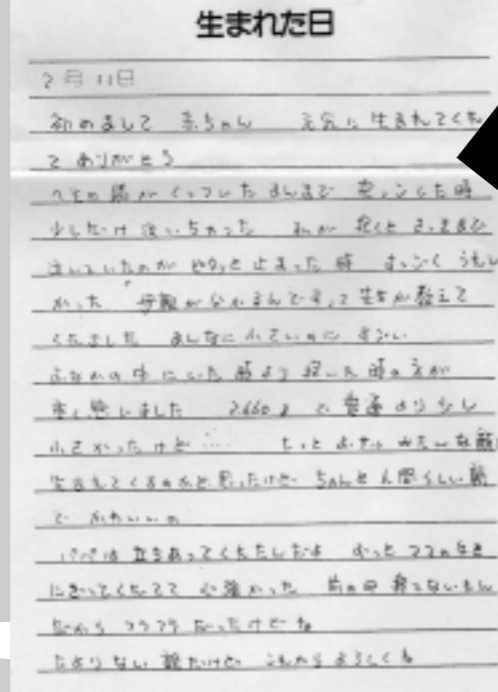 生まれた日
2月11日
初めまして 赤ちゃん 元気に生まれてくれ
てありがとう
へその緒がくっついたまんまで 抱っこした時
少しだけ泣いちゃった 私が抱くとさっきまで
泣いていたのがピタッと止まった時 すっごくうれし
かった 母親が分かるんですよって先生が教えて
くれました あんなに小さいのにすごい
おなかの中にいた時より抱いた時の方が
重く感じました 2660gで普通より少し
小さかったけど…… もっとおサルみたいな顔で
生まれてくるのかと思ったけど ちゃんと人間らしい顔
で かわいいの
パパは立ちあってくれたんだよ ずっとママの手を
にぎってくれてて 心強かった 前の日寝てないもん
だから フラフラだったけどね
たよりない親だけど これからよろしくね